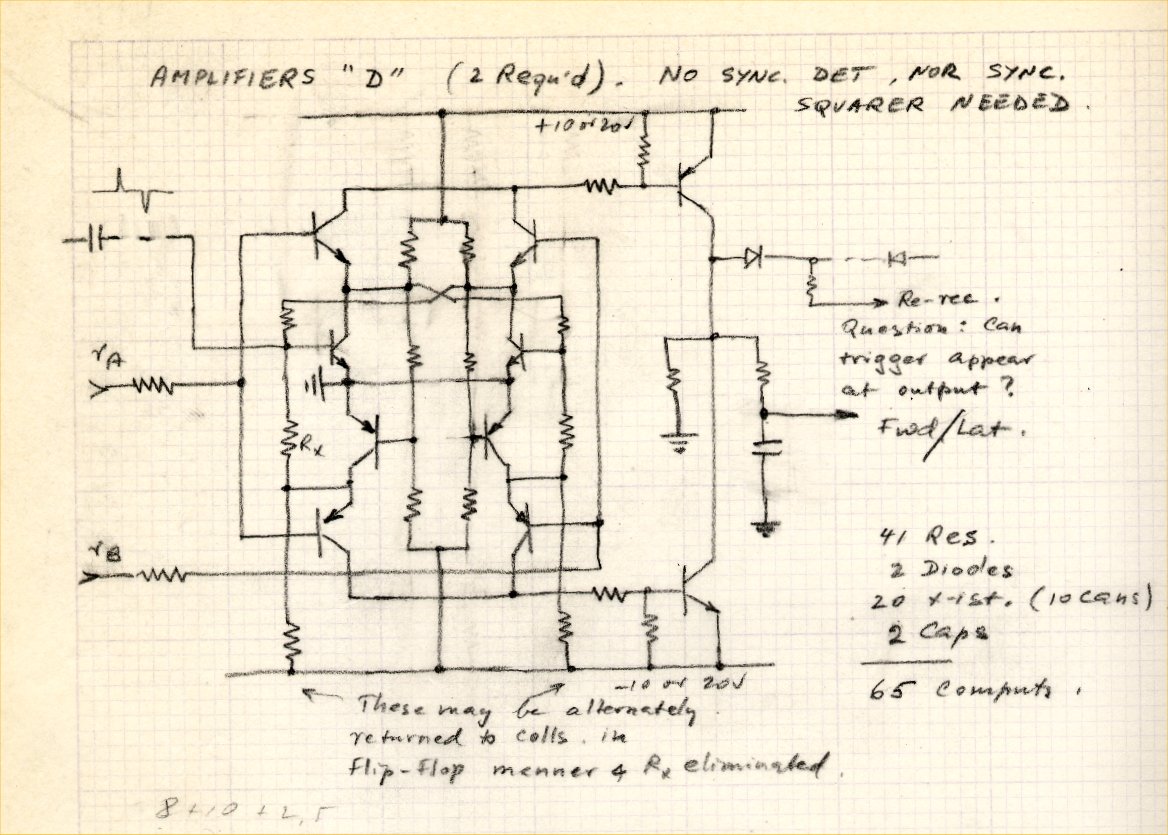 AMPLIFIERS "D" (2 Requ'd). NO SYNC. DET, NOR SYNC.
SQUARER NEEDED.
+10 or 20V
rA
Re-rec.
Question: Can
trigger appear
at output?
Fwd/Lat.
Rx
rB
41 Res.
2 Diodes
20 x-ist. (10 cans)
2 Caps
65 Componts.
-10 or 20V
These may be alternately
returned to colls. in
flip-flop manner & Rx eliminated.
8+10+2,5